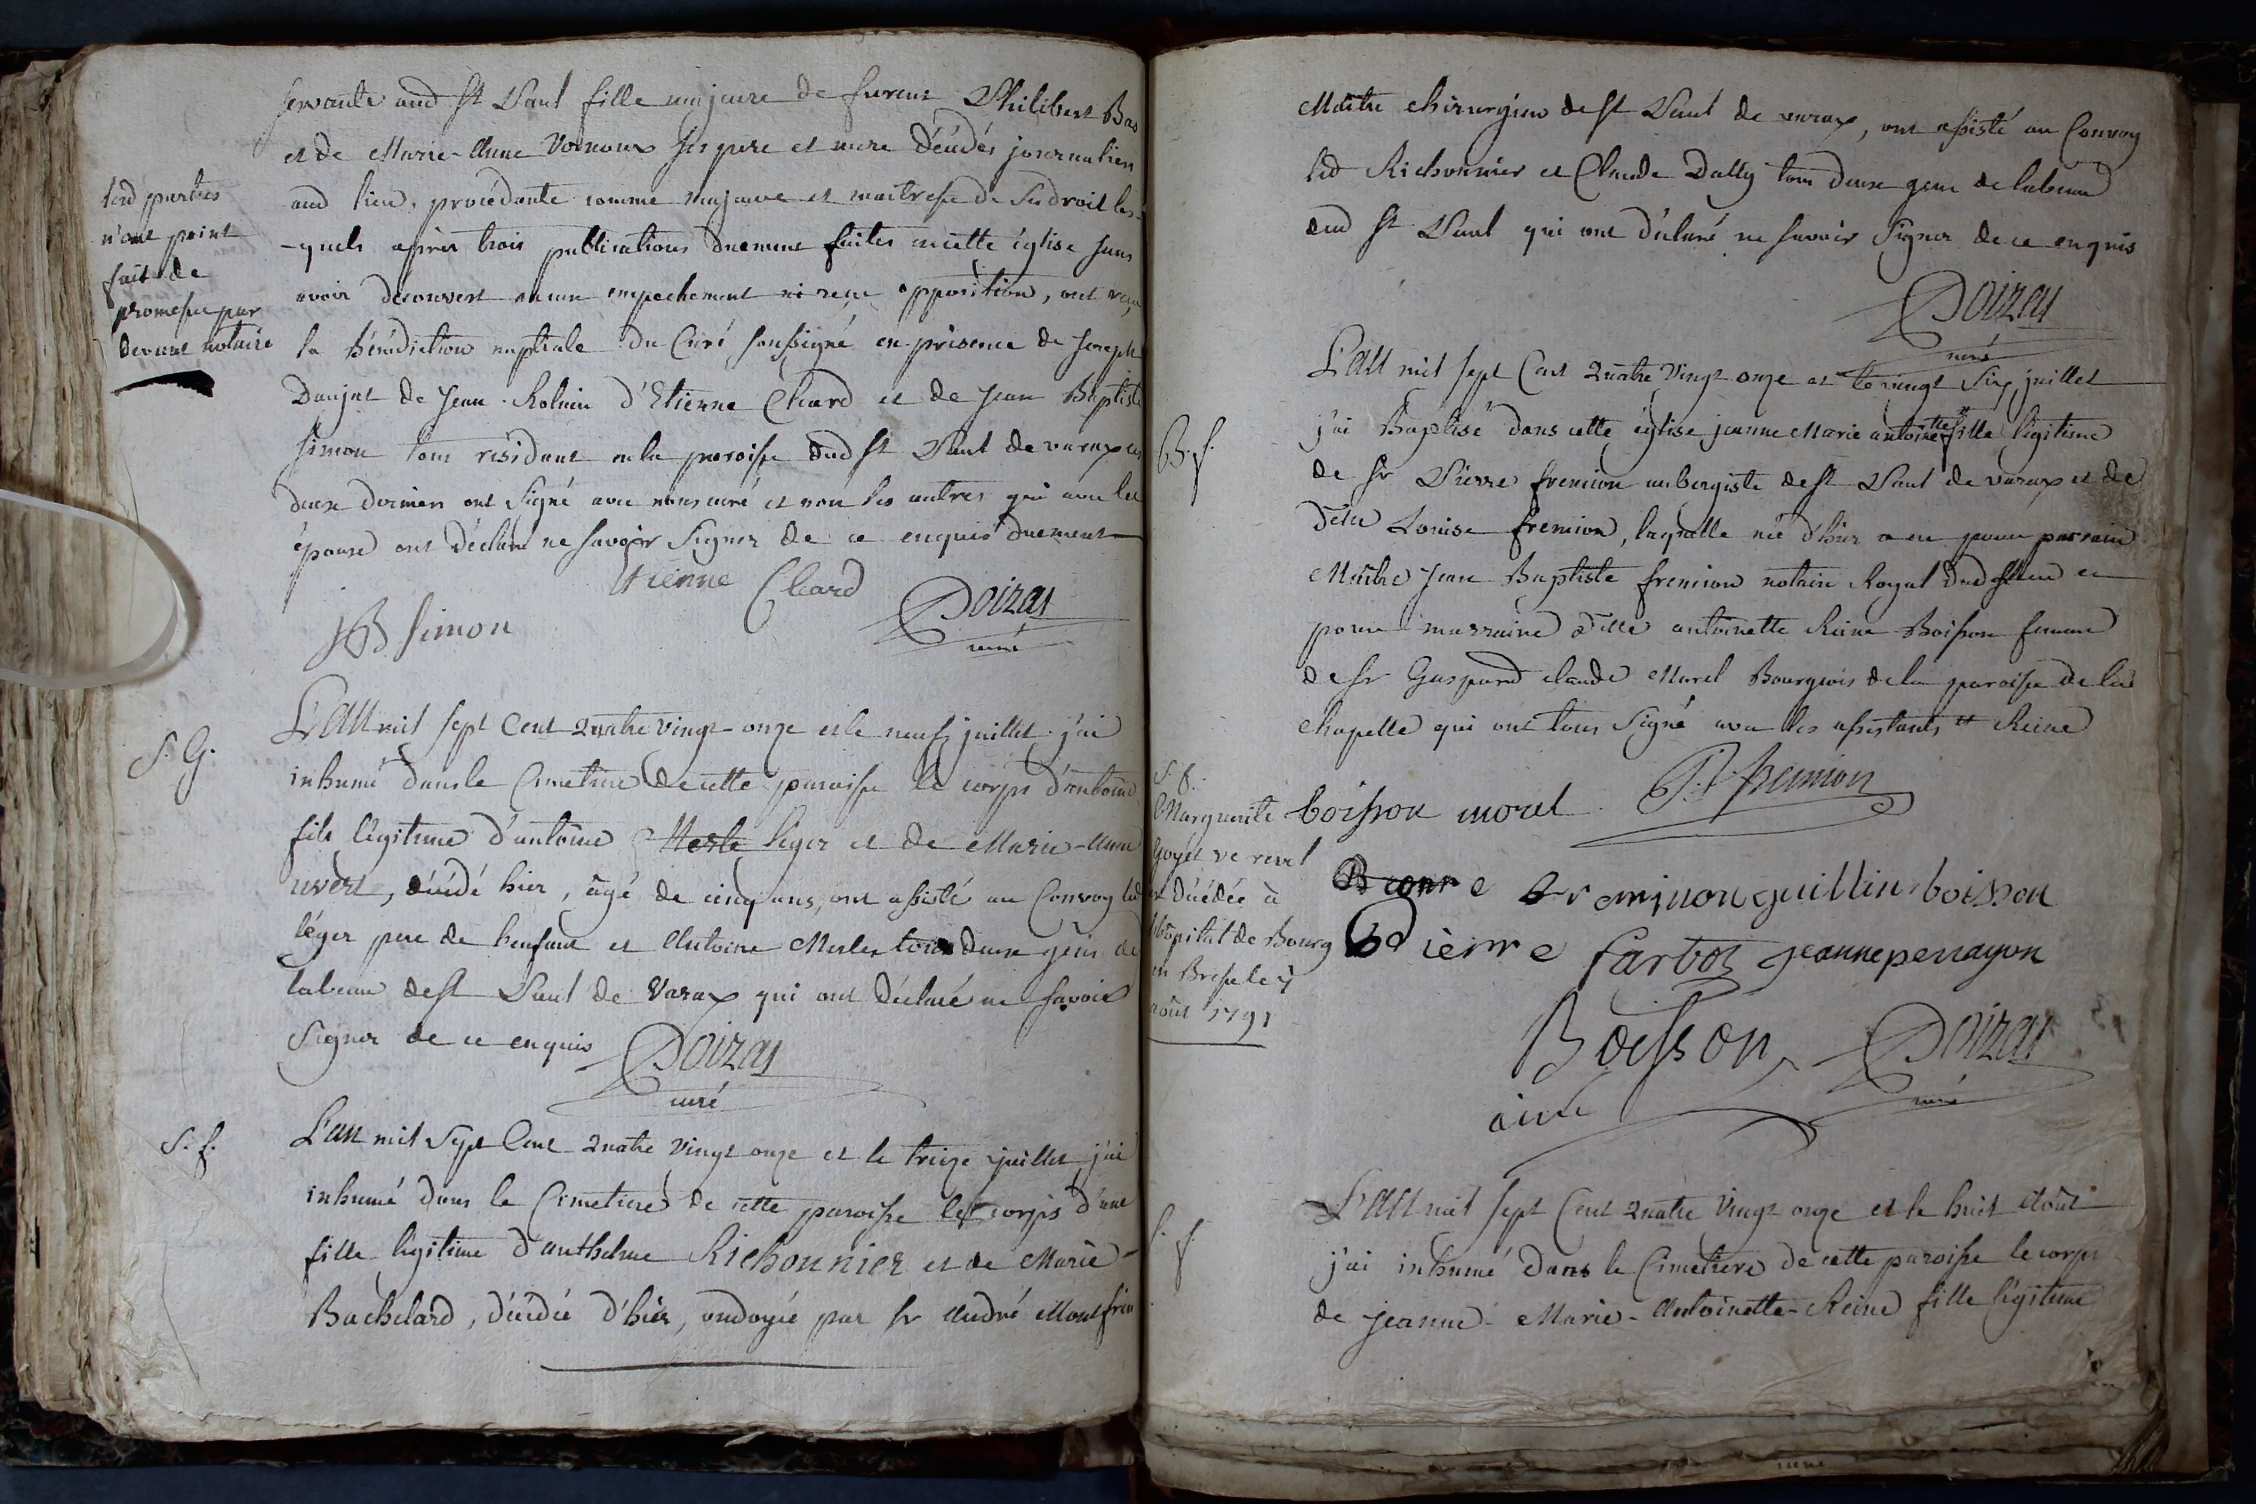 servante aud St Paul fille majeure de furent Philibert Bas
et de Marie-Anne Vornoux ses pere et mere décédés journaliers
aud lieu, procédante comme majeure et maitresse de ses droits les-
-quels après trois publications duement faites en cette église sans
avoir decouvert aucun empechement ni reçu opposition, ont reçu
la bénédiction nuptiale du Curé soussigné en présence de Joseph
Danjat de Jean Rolnin d'Etienne Chard et de Jean Baptiste
Simon tous résidant en la paroisse dud St Paul de varax les
deux derniers ont signé avec nous curé et non les autres qui avec les
épouse ont déclaré ne savoir signer de ce enquis duement
lesd parties
n'ont point
fait de
promesse par
devant notaire
Etienne Chard
JB Simon
Doizas
curé
S. G.
L'an mil sept Cent quatre vingt-onze et le neuf juillet j'ai
inhumé dans le Cimetiere de cette paroisse le corps d'antoine
fils légitime d'antoine Merle léger et de Marie-Anne
uvert, décédé hier, âgé de cinq ans, ont assisté au Convoy led
léger pere de l'enfant et Antoine Merles tous deux gens de
labeur de St Paul de Varax qui ont déclaré ne savoir
signer de ce enquis
Doizas
curé
S. f.
L'an mil sept Cent quatre vingt onze et le treize juillet j'ai
inhumé dans le Cimetiere de cette paroisse le corps d'une
fille légitime d'anthelme Richonnier et de Marie-
Bachelard, décédée d'hier, ondoyée par sr André Montfrin
Maitre chirurgien de St Paul de varax, ont assisté au Convoy
led Richonnier et Claude Dally tous deux gens de labeur
dud St Paul qui ont déclaré ne savoir signer de ce enquis
Doizas
curé
B. f.
L'an mil sept Cent quatre vingt onze et le vingt six juillet
j'ai Baptisé dans cette église jeanne Marie antoinette fille légitime
de sr Pierre fremion aubergiste de St Paul de varax et de
delle Louise fremion, laquelle née d'hier a eu pour parrain
Maitre Jean Baptiste fremion notaire Royal dud lieu et
pour marraine delle antoinette Reine Boisson femme
de sr Gaspard claude Morel Bourgeois de la paroisse de la
chapelle qui ont tous signé avec les assistants # Reine
boisson morel
fremion
S. f.
Marguerite
Goyet ve revel
est décédée à
l'hôpital de Bourg
en Bresse le 7
août 1791
guillin boisson
pierre farbot jeanne perrayon
Boisson
Doizas
curé
S. f.
L'an mil sept Cent quatre vingt onze et le huit Août
j'ai inhumé dans le Cimetiere de cette paroisse le corps
de jeanne-Marie-Antoinette-Reine fille légitime